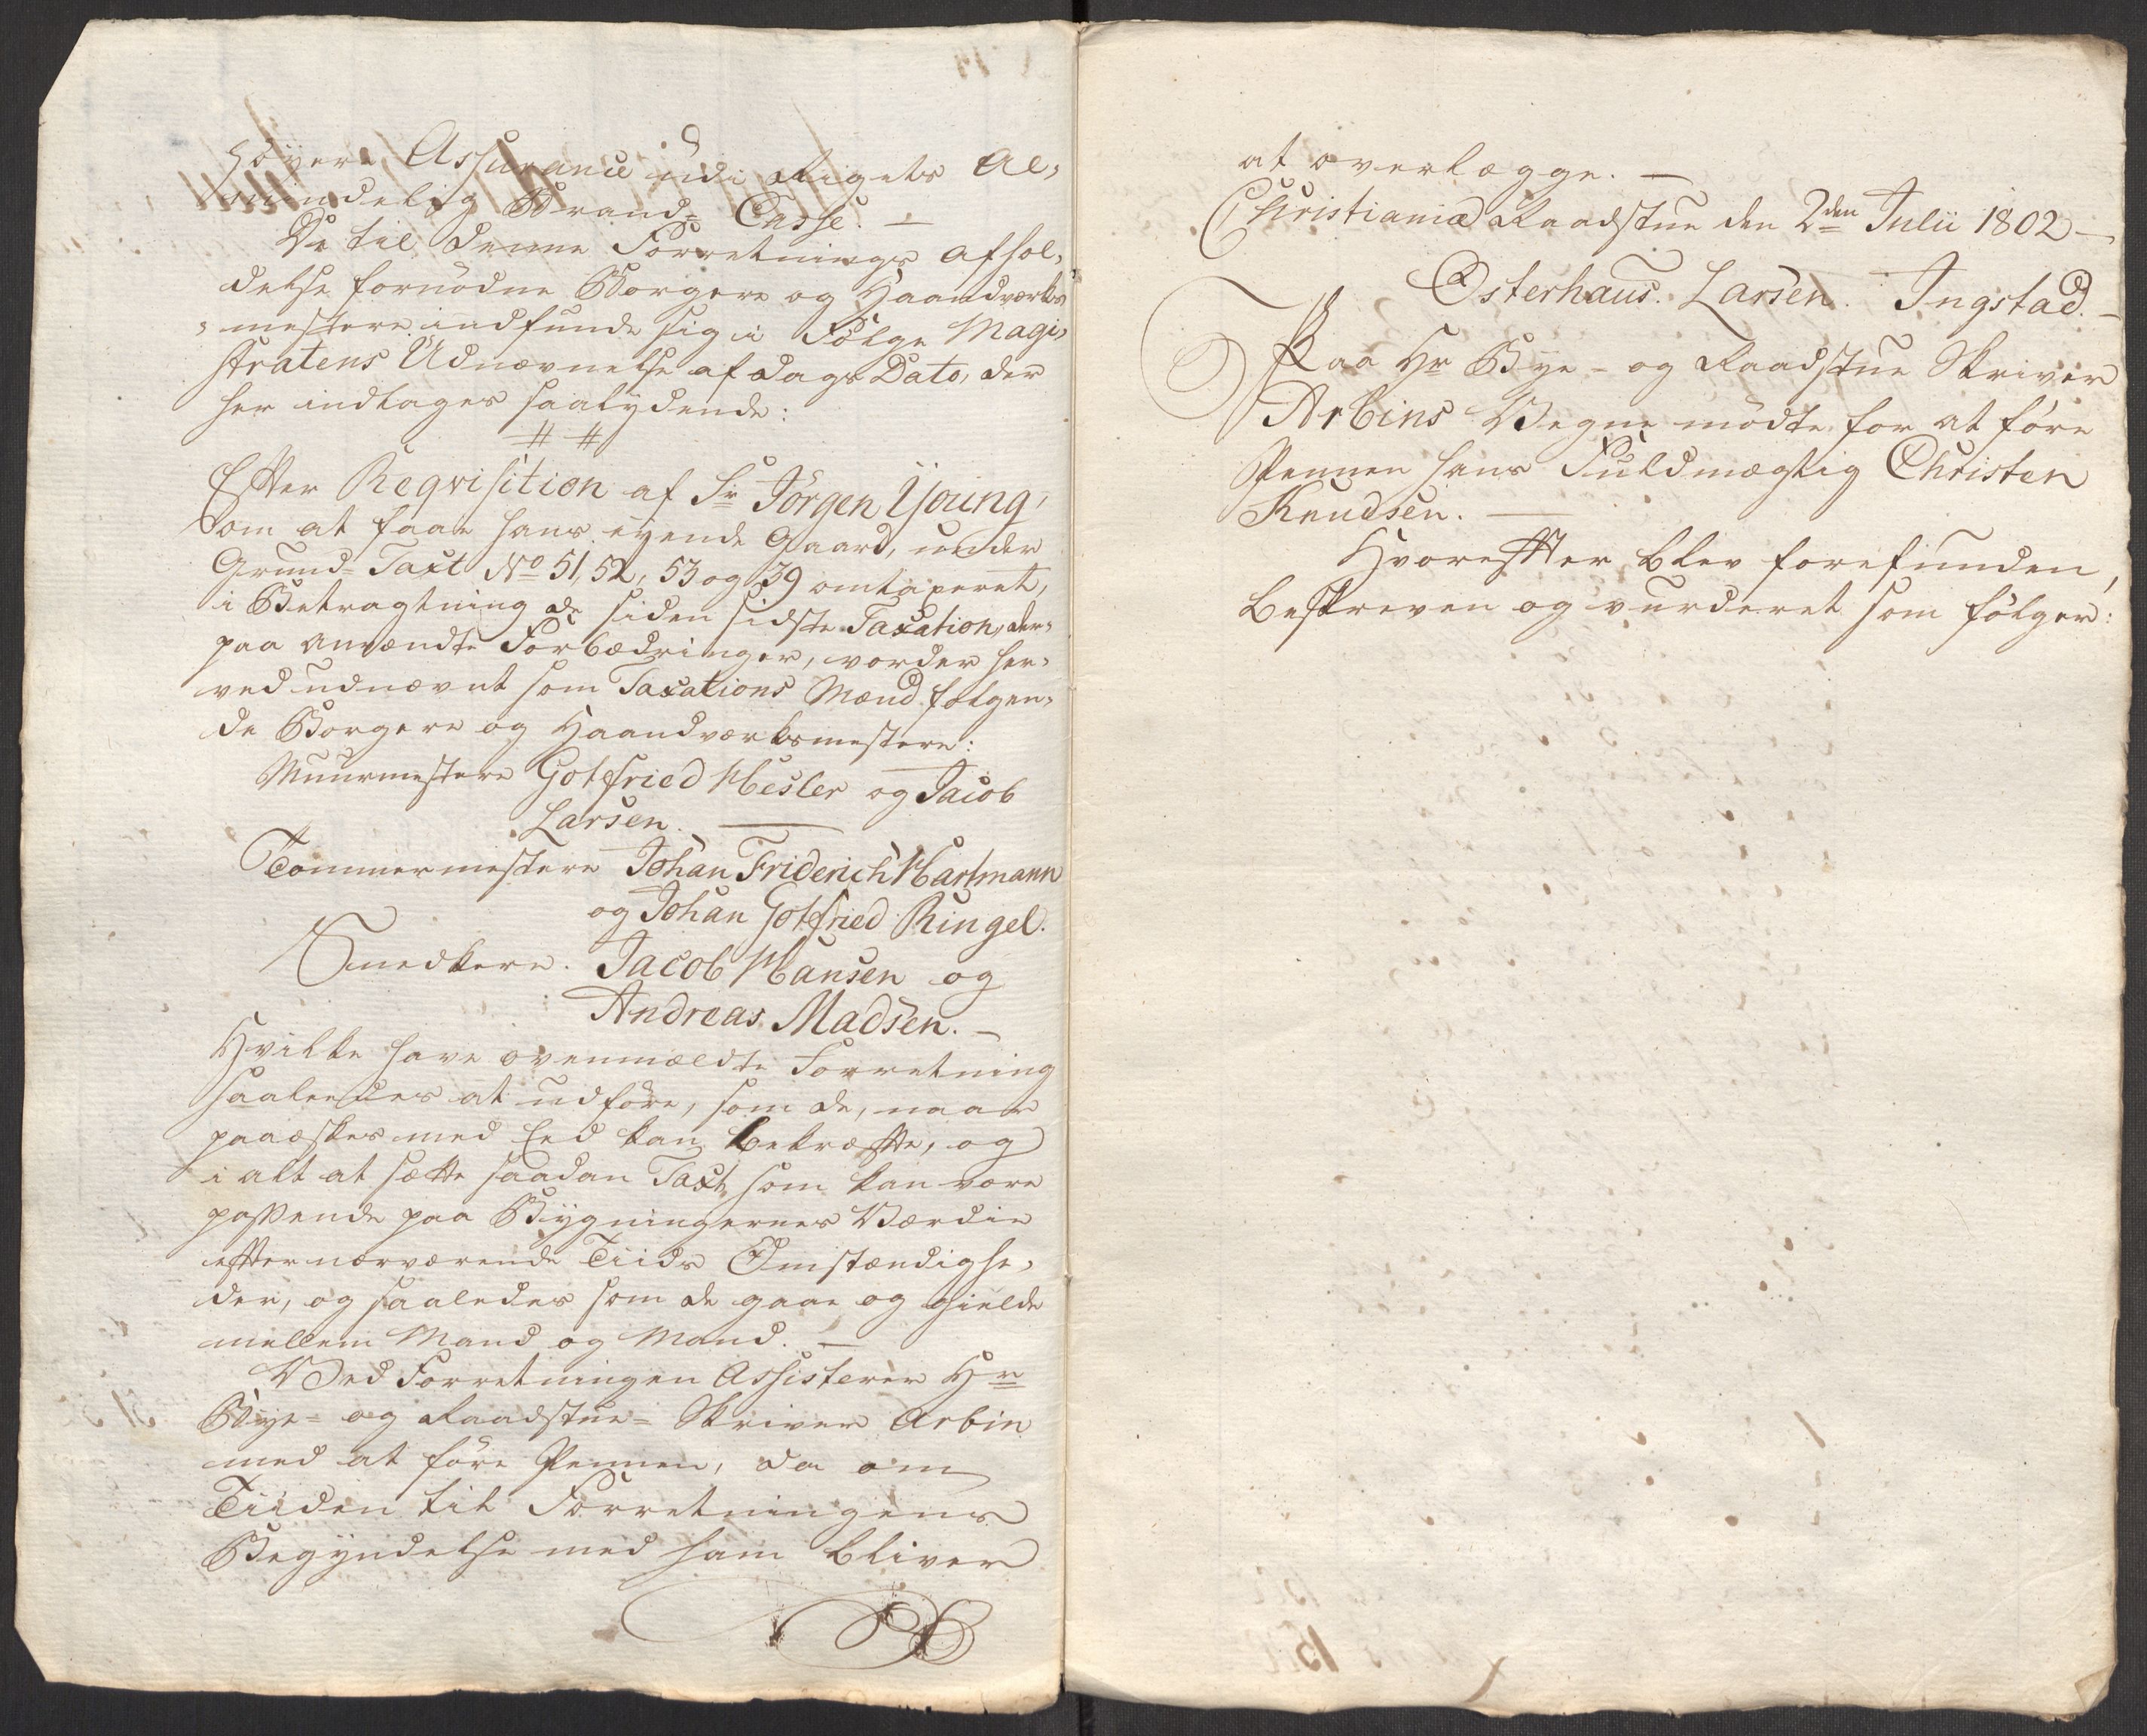 höyere Assurance udi Rigets Al-
mindelig Brand-Casse. —
De til denne Forretnings Afhol-
delse fornödne Borgere og Haandværks-
mestere indfunde sig i Fölge Magi-
stratens Udnævnelse af Dags Dato, der
her indtages saalydende:
⧺ ⧺
Efter Reqvisition af Sr Jörgen Young,
om at faae hans eyende Gaard, under
Grund-Taxt No 51, 52, 53 og 39 omtaxeret,
i Betragtning de siden sidste Taxation, der-
paa anvændte Forbædringer, vorder her-
ved udnævnt som Taxations Mænd følgen-
de Borgere og Haandværksmestere:
Muurmestere Gotfried Hesler og Jacob
Larsen. —
Tömmermestere Johan Friderich Hartmann
og Johan Gotfried Ringel.
Snedkere. Jacob Hansen og
Andreas Madsen. —
Hvilke have ovenmældte Forretning
saaledes at udföre, som de, naar
paaæskes med Eed kan bekræfte, og
i alt at sætte saadan Taxt, som kan være
passende paa Bygningernes Værdie
efter nærværende Tiids Omstændighe-
der, og saaledes som de gaae og gielde
mellem Mand og Mand. —
Ved Forretningen Assisterer Hr
Bye- og Raadstue-Skriver Arbin
med at före Pennen, da om
Tiiden til Forretningens
Begyndelse med ham bliver
at overlægge. —
Christiania Raadstue den 2den Julii 1802 —
Osterhaus. Larsen. Ingstad. —
Paa Hr Bye- og Raadstue Skriver
Arbins Vegne mödte for at före
Pennen hans Fuldmægtig Christen
Knudsen. —
Hvorefter blev forefunden,
beskreven og vurderet som fölger: